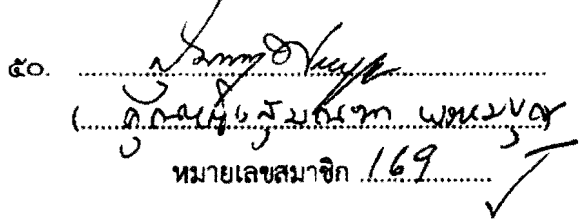 ๕๐.
( คุณหญิง สุมณฑา พรหมบุญ
หมายเลขสมาชิก 169